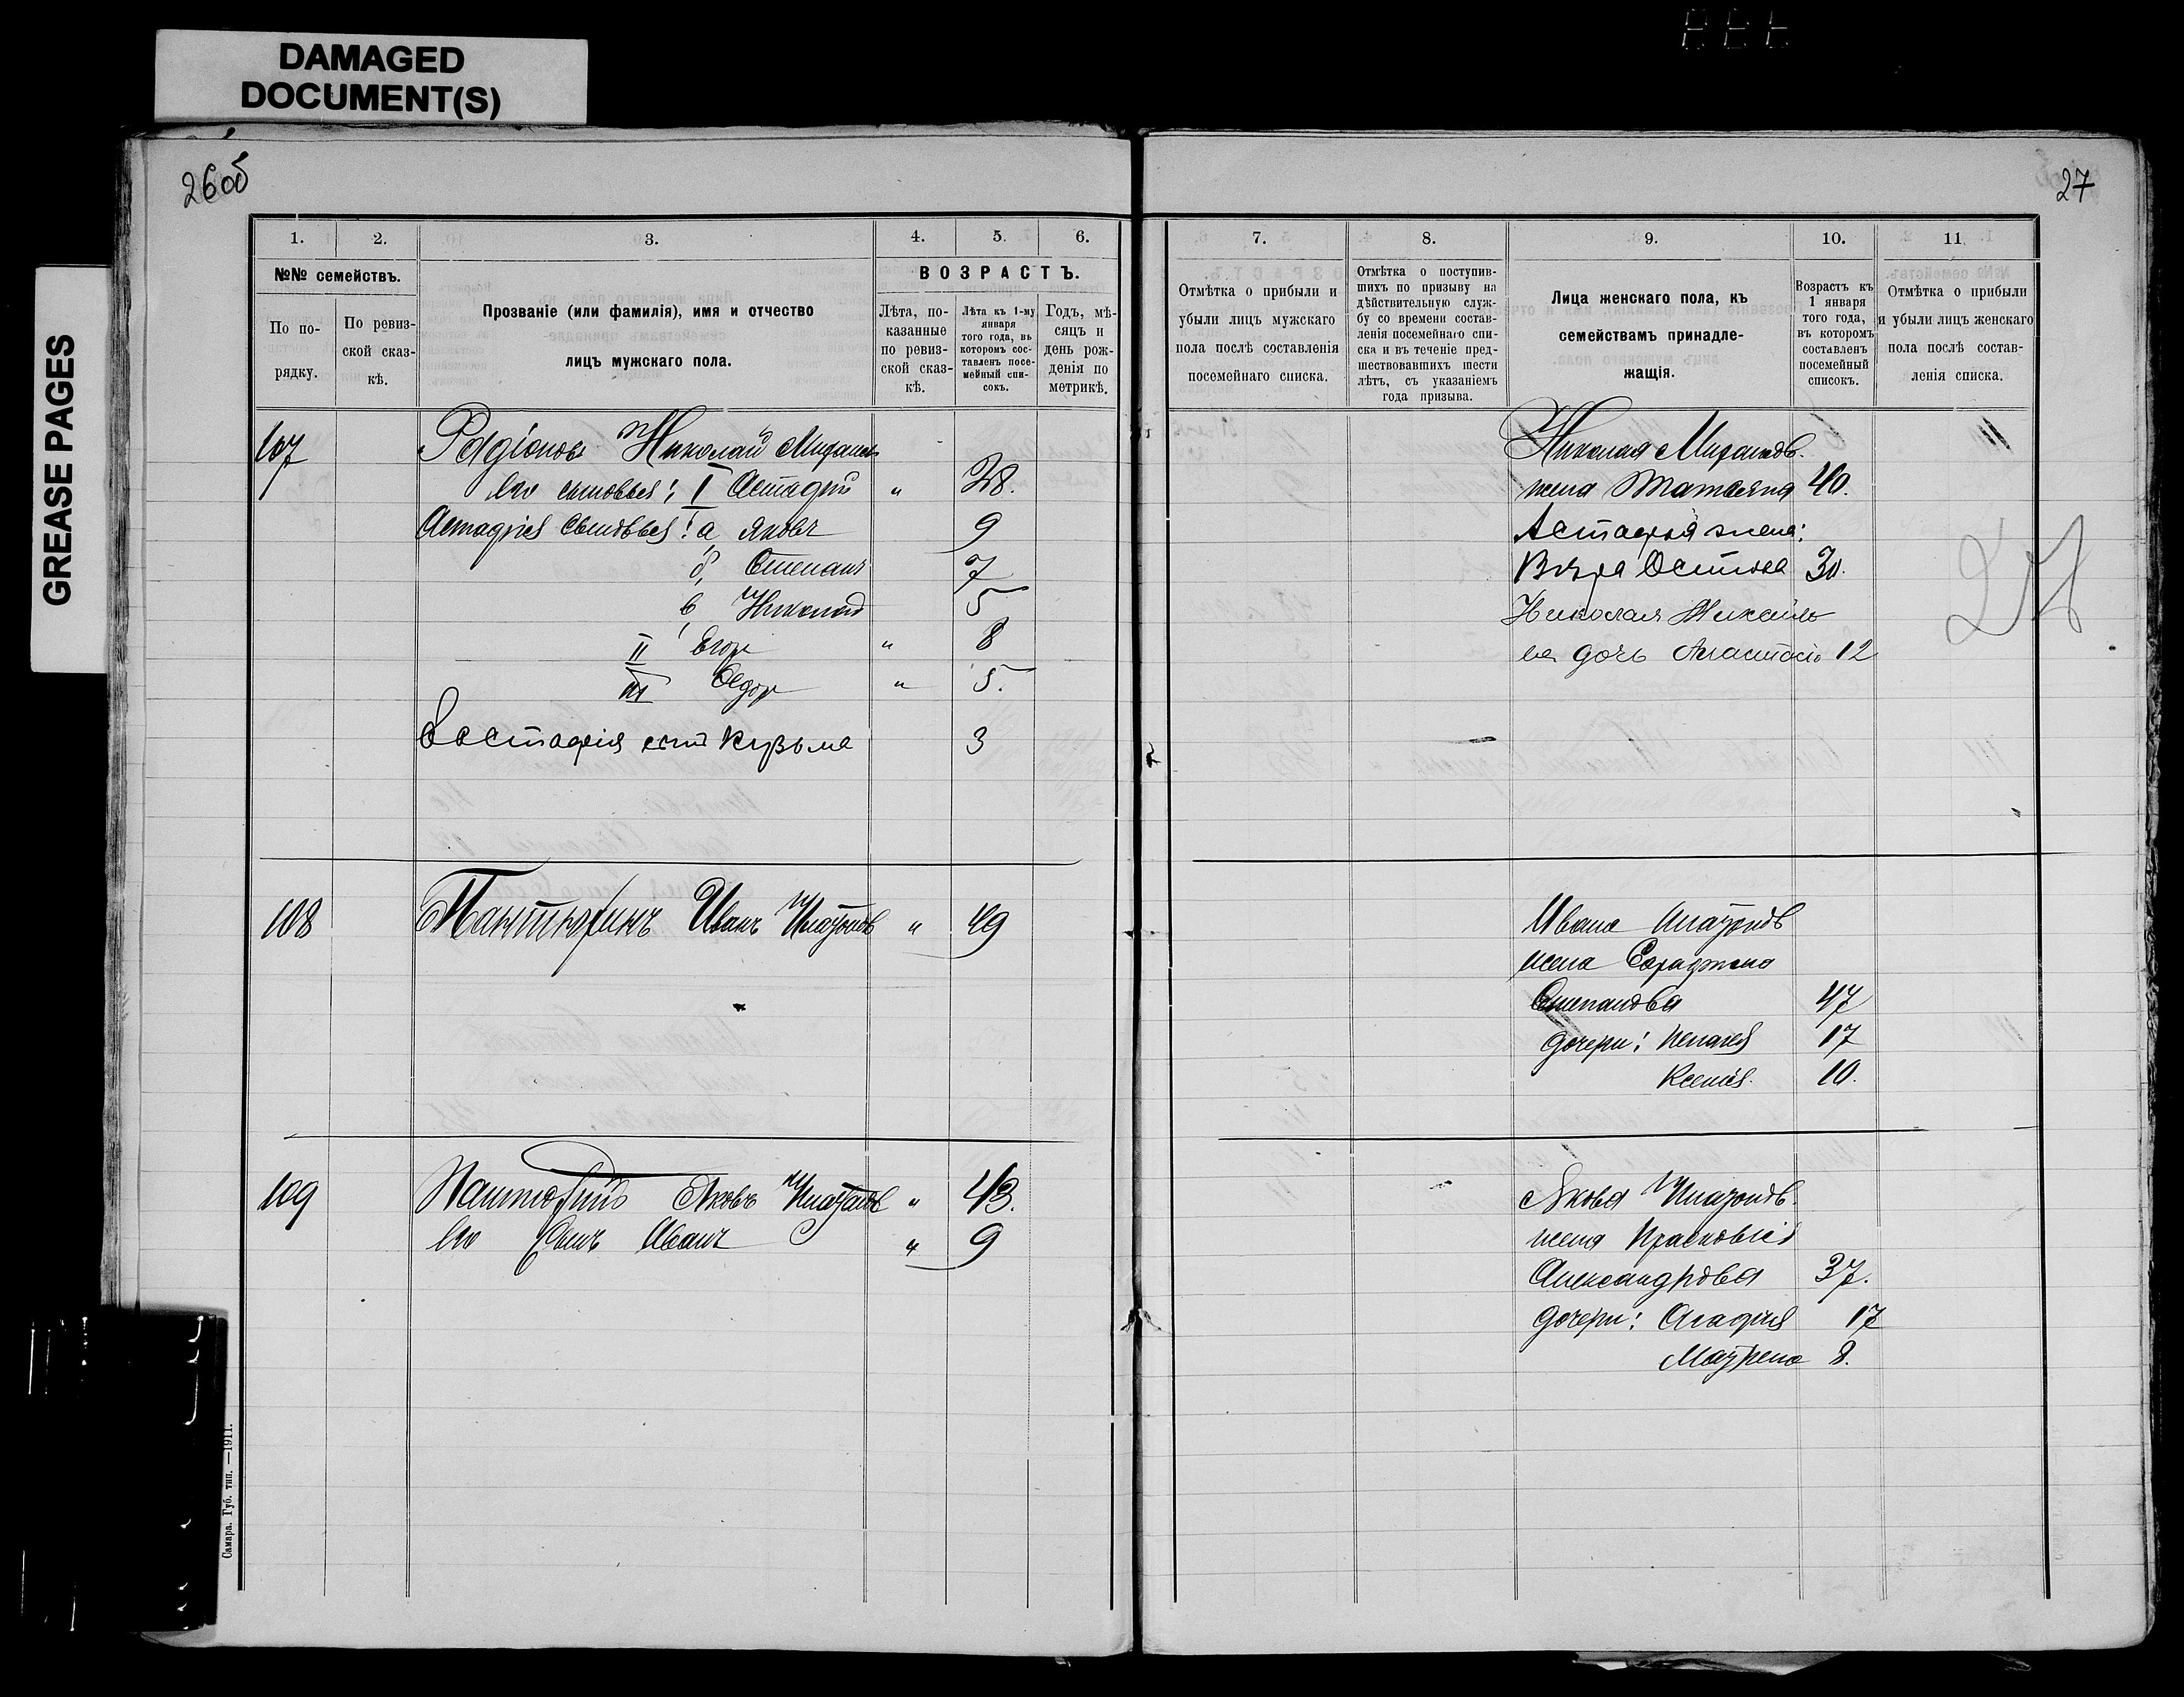 DAMAGED
DOCUMENT(S)
GREASE PAGES
26об
27
1.
2.
3.
4.
5.
6.
№№ семействъ.
ВОЗРАСТЪ.
По по-
рядку.
По ревиз-
ской сказ-
кѣ.
Прозваніе (или фамилія), имя и отчество
лицъ мужскаго пола.
Лѣта, по-
казанные
по ревиз-
ской сказ-
кѣ.
Лѣта къ 1-му
января
того года, въ
которомъ сос-
тавленъ посе-
мейный спи-
сокъ.
Годъ, мѣ-
сяцъ и
день рож-
денія по
метрикѣ.
107 Радіоновъ Николай
Его сыновья: I Астафій " 28.
Астафія сыновья: а, Яковъ 9
б, Степанъ 7
в, Николай 5
II Егоръ " 8
III Федоръ " 5.
Евстафія сынъ Кузьма 3
108 Пантюхинъ Иванъ " 49
109 Пантюхинъ Яковъ " 43.
Его сынъ Иванъ " 9
Самара. Губ. тип. —1911.
7.
8.
9.
10.
11
Отмѣтка о прибыли и
убыли лицъ мужскаго
пола послѣ составленія
посемейнаго списка.
Отмѣтка о поступив-
шихъ по призыву на
дѣйствительную служ-
бу со времени состав-
ленія посемейнаго спи-
ска и въ теченіе пред-
шествовавшихъ шести
лѣтъ, съ указаніемъ
года призыва.
Лица женскаго пола, къ
семействамъ принадле-
жащія.
Возрастъ къ
1 января
того года,
въ которомъ
составленъ
посемейный
списокъ.
Отмѣтка о прибыли
и убыли лицъ женскаго
пола послѣ состав-
ленія списка.
Николая
жена Татьяна 40.
Астафія жена:
Вѣра 30.
Николая
дочь 12
27
Ивана
жена
Степанова 47
дочери: 17
Ксенія. 10.
Якова
жена Прасковія
Александрова 37.
дочери: Агафія 17
8.